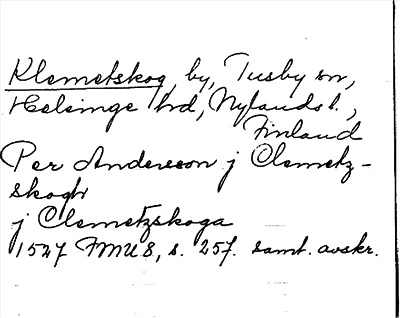 Klemetskog, by, Tusby sn,
Helsinge hd, Nylands l.,
Finland
Per Andersson j Clemetz-
skogh
j Clemetzskoga
1527 FMU 8, s. 257. samt. avskr.